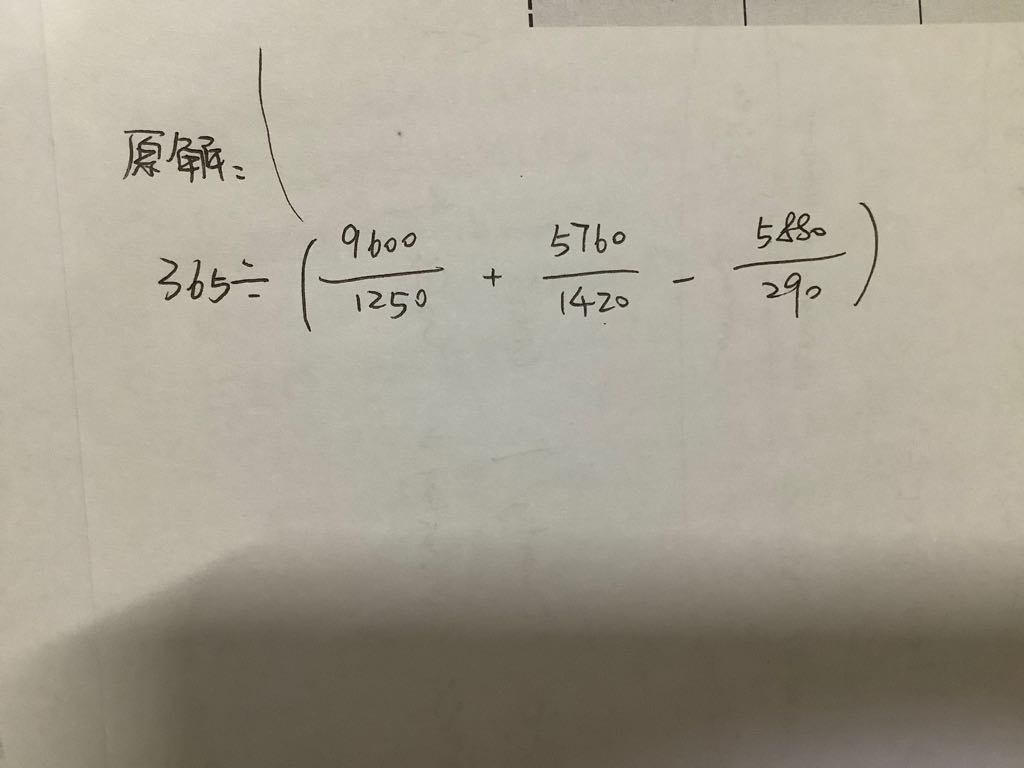 原解:
365÷(9600/1250 + 5760/1420 - 5880/290)